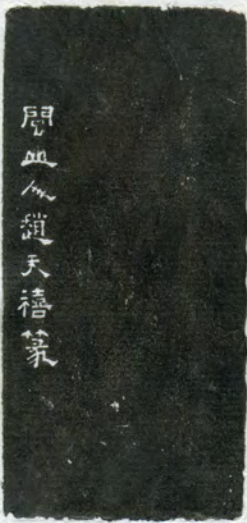 閭山人趙天禧篆